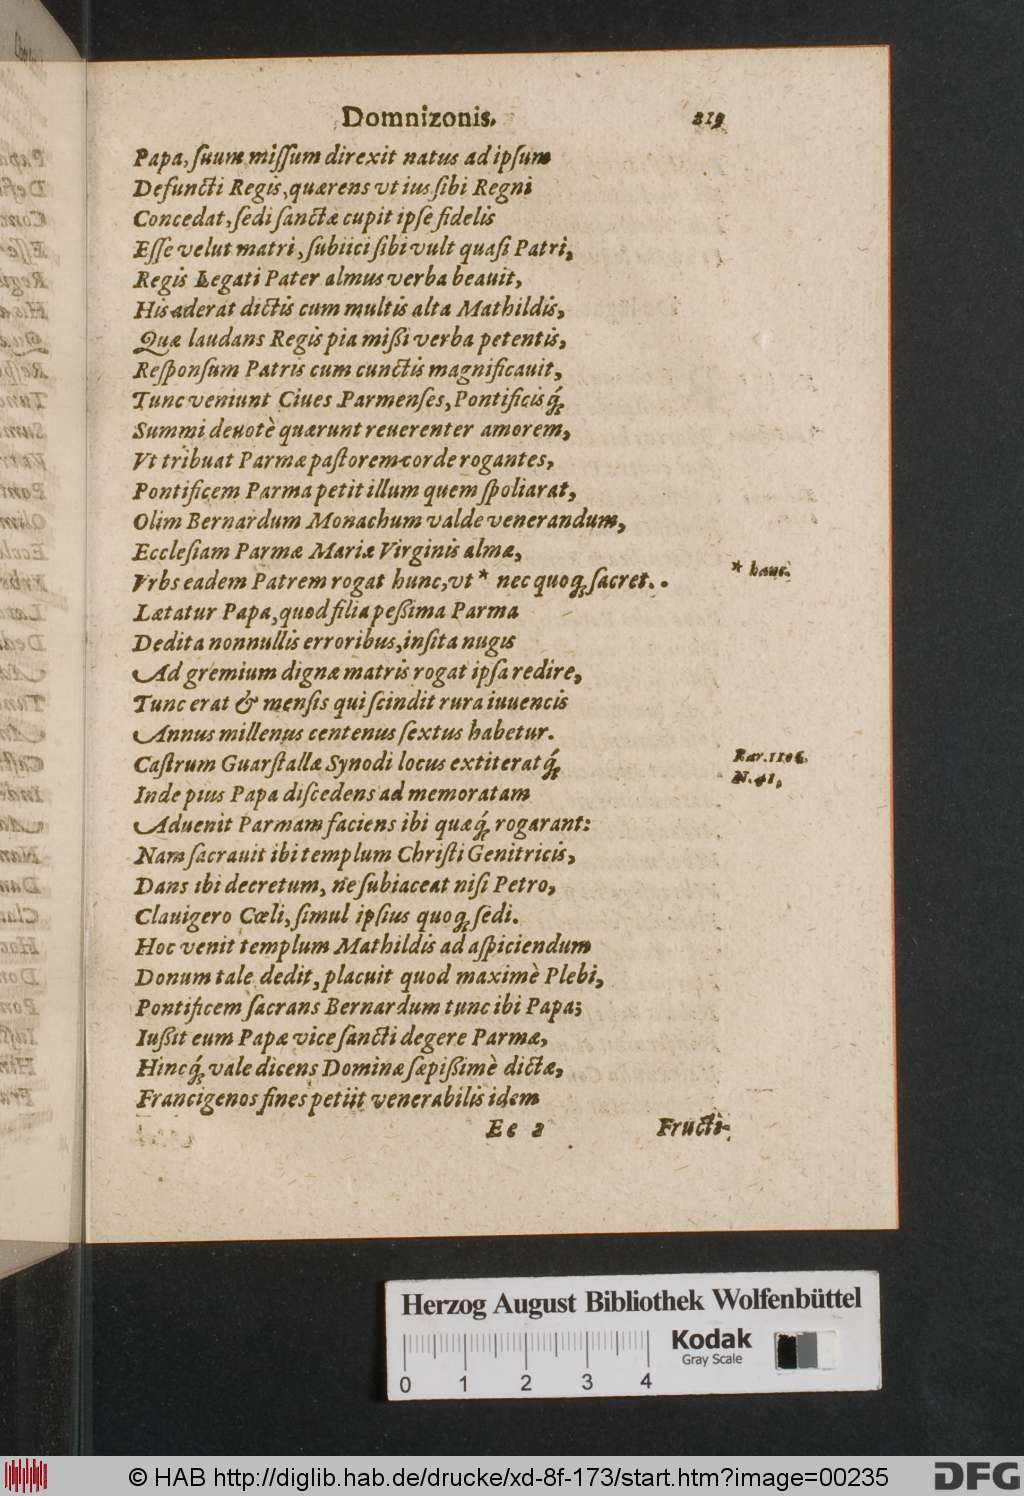 Domnizonis. 219
Papa, ſuum miſſum direxit natus ad ipſum
Defuncti Regis, quærens vt ius ſibi Regni
Concedat, ſedi ſanctæ cupit ipſe fidelis
Eſſe velut matri, ſubiici ſibi vult quaſi Patri,
Regis Legati Pater almus verba beauit,
His aderat dictis cum multis alta Mathildis,
Quæ laudans Regis pia miſſi verba petentis,
Reſponſum Patris cum cunctis magnificauit,
Tunc veniunt Ciues Parmenſes, Pontificisq́;
Summi deuotè quærunt reuerenter amorem,
Vt tribuat Parmæ paſtorem corde rogantes,
Pontificem Parma petit illum quem ſpoliarat,
Olim Bernardum Monachum valde venerandum,
Eccleſiam Parmæ Mariæ Virginis almæ,
Vrbs eadem Patrem rogat hunc, vt * nec quoq; ſacret. . * hanc.
Lætatur Papa, quod filia peßima Parma
Dedita nonnullis erroribus, inſita nugis
Ad gremium dignæ matris rogat ipſa redire,
Tunc erat & menſis qui ſcindit rura iuuencis
Annus millenus centenus ſextus habetur.
Caſtrum Guarſtallæ Synodi locus extiterat q́; Bar. 1106.
Inde pius Papa diſcedens ad memoratam N. 41,
Aduenit Parmam faciens ibi quæq́; rogarant:
Nam ſacrauit ibi templum Chriſti Genitricis,
Dans ibi decretum, ne ſubiaceat niſi Petro,
Clauigero Cœli, ſimul ipſius quoq; ſedi.
Hoc venit templum Mathildis ad aſpiciendum
Donum tale dedit, placuit quod maximè Plebi,
Pontificem ſacrans Bernardum tunc ibi Papa;
Iußit eum Papæ vice ſancti degere Parmæ,
Hincq́; vale dicens Dominæ ſæpißimè dictæ,
Francigenos fines petiit venerabilis idem
Ee 2 Fructi-
Herzog August Bibliothek Wolfenbüttel
Kodak
Gray Scale
0 1 2 3 4
© HAB http://diglib.hab.de/drucke/xd-8f-173/start.htm?image=00235
DFG